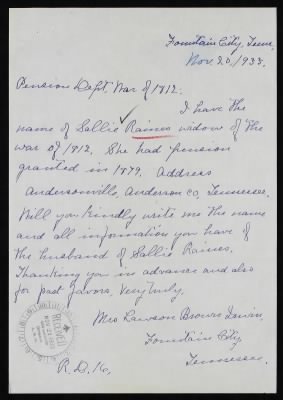 Fountain City, Tenn.
Nov. 20, 1933.
Pension Dept. War of 1812.
I have the
name of Sallie Raines widow of the
war of 1812. She had pension
granted in 1879. Address
Andersonville, Anderson Co, Tennessee.
Will you kindly write me the name
and all information you have of
the husband of Sallie Raines.
Thanking you in advance and also
for past favors. Very truly,
Mrs Lawson Brown Irwin,
Fountain City,
Tennessee.
R.D. 16,
RECEIVED